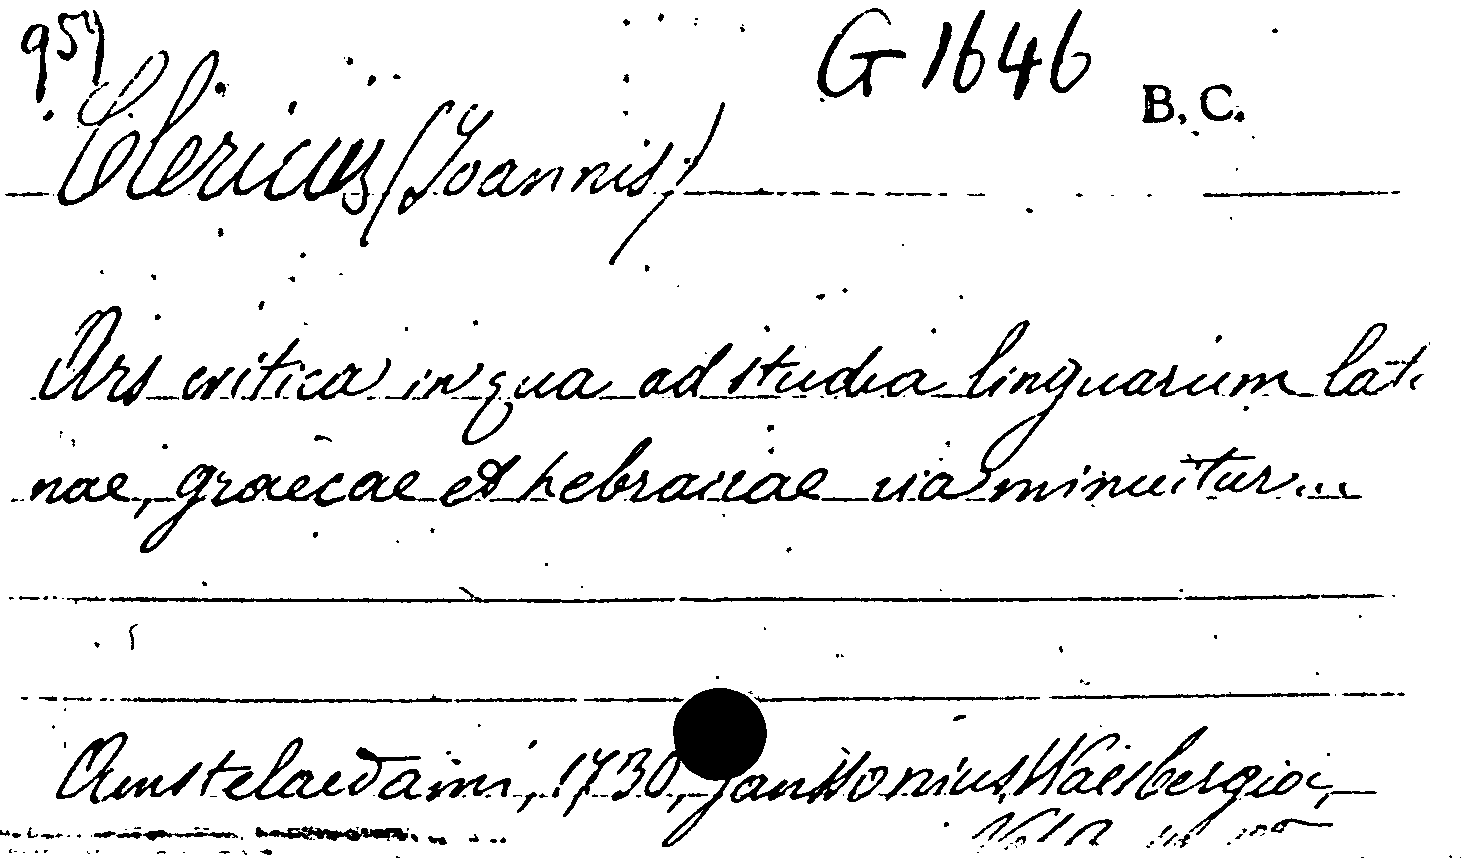 957 G 1646 B. C.
Clericus (Joannis)
Ars critica in qua ad studia linguarum lati
nae, graecae et hebraicae via minuitur...
Amstelaedami, 1730, Janssonius Waesbergios,
Vol